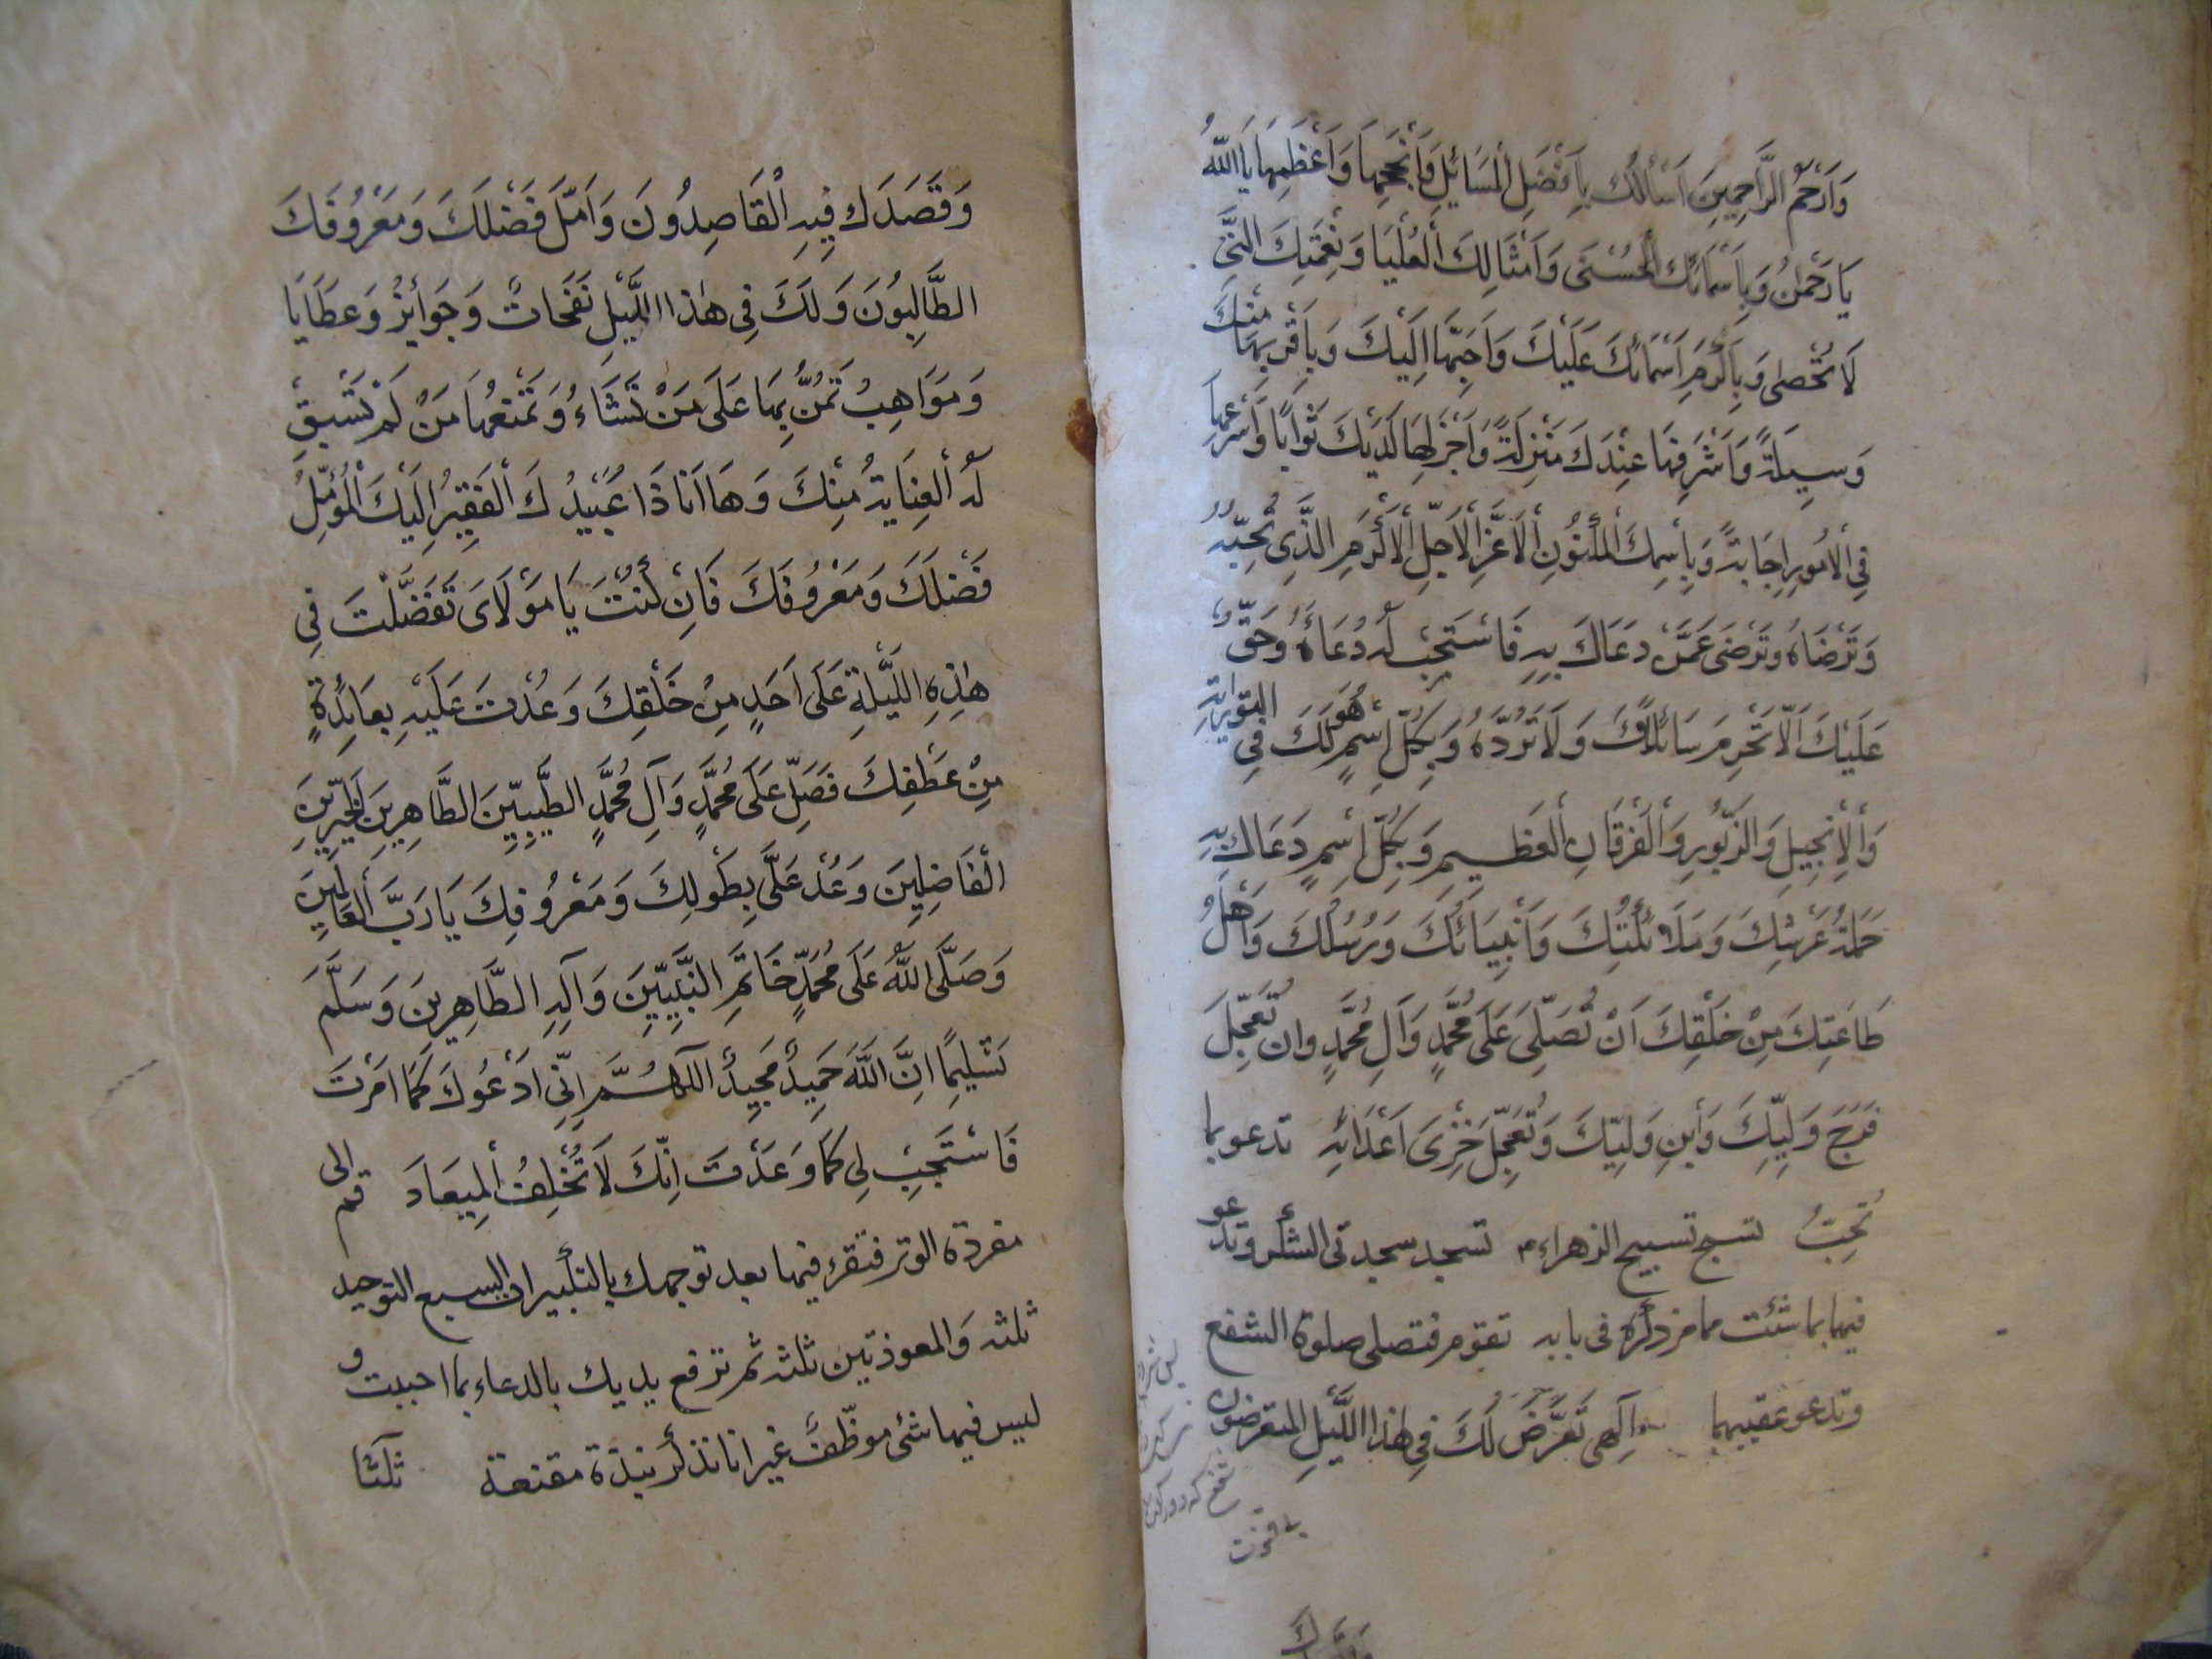 وَاَرْحَمَ الرَّاحِمِينَ اَسْأَلُكَ بِاَفْضَلِ الْمَسَائِلِ وَاَنْجَحِهَا وَاَعْظَمِهَا يَا اَللّٰهُ
يَا رَحْمٰنُ وَبِاَسْمَائِكَ الْحُسْنَى وَاَمْثَالِكَ الْعُلْيَا وَنِعْمَتِكَ الَّتِي
لَا تُحْصٰى وَبِاَكْرَمِ اَسْمَائِكَ عَلَيْكَ وَاَحَبِّهَا اِلَيْكَ وَبِاَقْرَبِهَا مِنْكَ
وَسِيلَةً وَاَشْرَفِهَا عِنْدَكَ مَنْزِلَةً وَاَجْزَلِهَا لَدَيْكَ ثَوَابًا وَاَسْرَعِهَا
فِي الْاُمُورِ اِجَابَةً وَبِاسْمِكَ الْمَكْنُونِ الْاَعَزِّ الْاَجَلِّ الْاَكْرَمِ الَّذِي تُحِبُّهُ
وَتَرْضَاهُ وَتَرْضَى عَمَّنْ دَعَاكَ بِهِ فَاسْتَجَبْتَ لَهُ دُعَاءَهُ وَحَقٌّ
عَلَيْكَ اَلَّا تَحْرِمَ سَائِلَكَ وَلَا تَرُدَّهُ وَبِكُلِّ اسْمٍ هُوَ لَكَ فِي التَّوْرٰيةِ
وَالْاِنْجِيلِ وَالزَّبُورِ وَالْفُرْقَانِ الْعَظِيمِ وَبِكُلِّ اسْمٍ دَعَاكَ بِهِ
حَمَلَةُ عَرْشِكَ وَمَلَائِكَتُكَ وَاَنْبِيَائُكَ وَرُسُلُكَ وَاَهْلُ
طَاعَتِكَ مِنْ خَلْقِكَ اَنْ تُصَلِّيَ عَلَى مُحَمَّدٍ وَآلِ مُحَمَّدٍ وان تُعَجِّلَ
فَرَجَ وَلِيِّكَ وَابْنِ وَلِيِّكَ وَتُعَجِّلَ خِزْيَ اَعْدَائِهِ تدعو بما
تُحِبُّ تسبح تسبيح الزهراء تسجد سجدتى الشكر وتدعو
فيها بما شئت مما مر ذكره فى بابه تقوم فتصلى صلوة الشفع
وتدعو عقيبهما اِلٰهِي تَعَرَّضَ لَكَ فِي هٰذَا اللَّيْلِ الْمُتَعَرِّضُونَ
شفع كه دو ركعت
بى قنوت
وَقَصَدَكَ فِيهِ الْقَاصِدُونَ وَاَمَّلَ فَضْلَكَ وَمَعْرُوفَكَ
الطَّالِبُونَ وَلَكَ فِي هٰذَا اللَّيْلِ نَفَحَاتٌ وَجَوَائِزُ وَعَطَايَا
وَمَوَاهِبُ تَمُنُّ بِهَا عَلَى مَنْ تَشَاءُ وَتَمْنَعُهَا مَنْ لَمْ تَسْبِقْ
لَهُ الْعِنَايَةُ مِنْكَ وَهَا اَنَا ذَا عُبَيْدُكَ الْفَقِيرُ اِلَيْكَ الْمُؤَمِّلُ
فَضْلَكَ وَمَعْرُوفَكَ فَاِنْ كُنْتَ يَا مَوْلَايَ تَفَضَّلْتَ فِي
هٰذِهِ اللَّيْلَةِ عَلَى اَحَدٍ مِنْ خَلْقِكَ وَعُدْتَ عَلَيْهِ بِعَائِدَةٍ
مِنْ عَطْفِكَ فَصَلِّ عَلَى مُحَمَّدٍ وَآلِ مُحَمَّدٍ الطَّيِّبِينَ الطَّاهِرِينَ الْخَيِّرِينَ
الْفَاضِلِينَ وَعُدْ عَلَيَّ بِطَوْلِكَ وَمَعْرُوفِكَ يَا رَبَّ الْعَالَمِينَ
وَصَلَّى اللّٰهُ عَلَى مُحَمَّدٍ خَاتَمِ النَّبِيِّينَ وَآلِهِ الطَّاهِرِينَ وَسَلَّمَ
تَسْلِيمًا اِنَّ اللّٰهَ حَمِيدٌ مَجِيدٌ اَللّٰهُمَّ اِنِّي اَدْعُوكَ كَمَا اَمَرْتَ
فَاسْتَجِبْ لِي كَمَا وَعَدْتَ اِنَّكَ لَا تُخْلِفُ الْمِيعَادَ قم الى
مفردة الوتر فتقرء فيها بعد توجهك بالتكبيرات السبع التوحيد
ثلثه وَالمعوذتين ثلثه ثم ترفع يديك بالدعاء بما احببت و
ليس فيها شئ موظّف غير انا نذكر نبذة مقنعة ثَلٰثًا